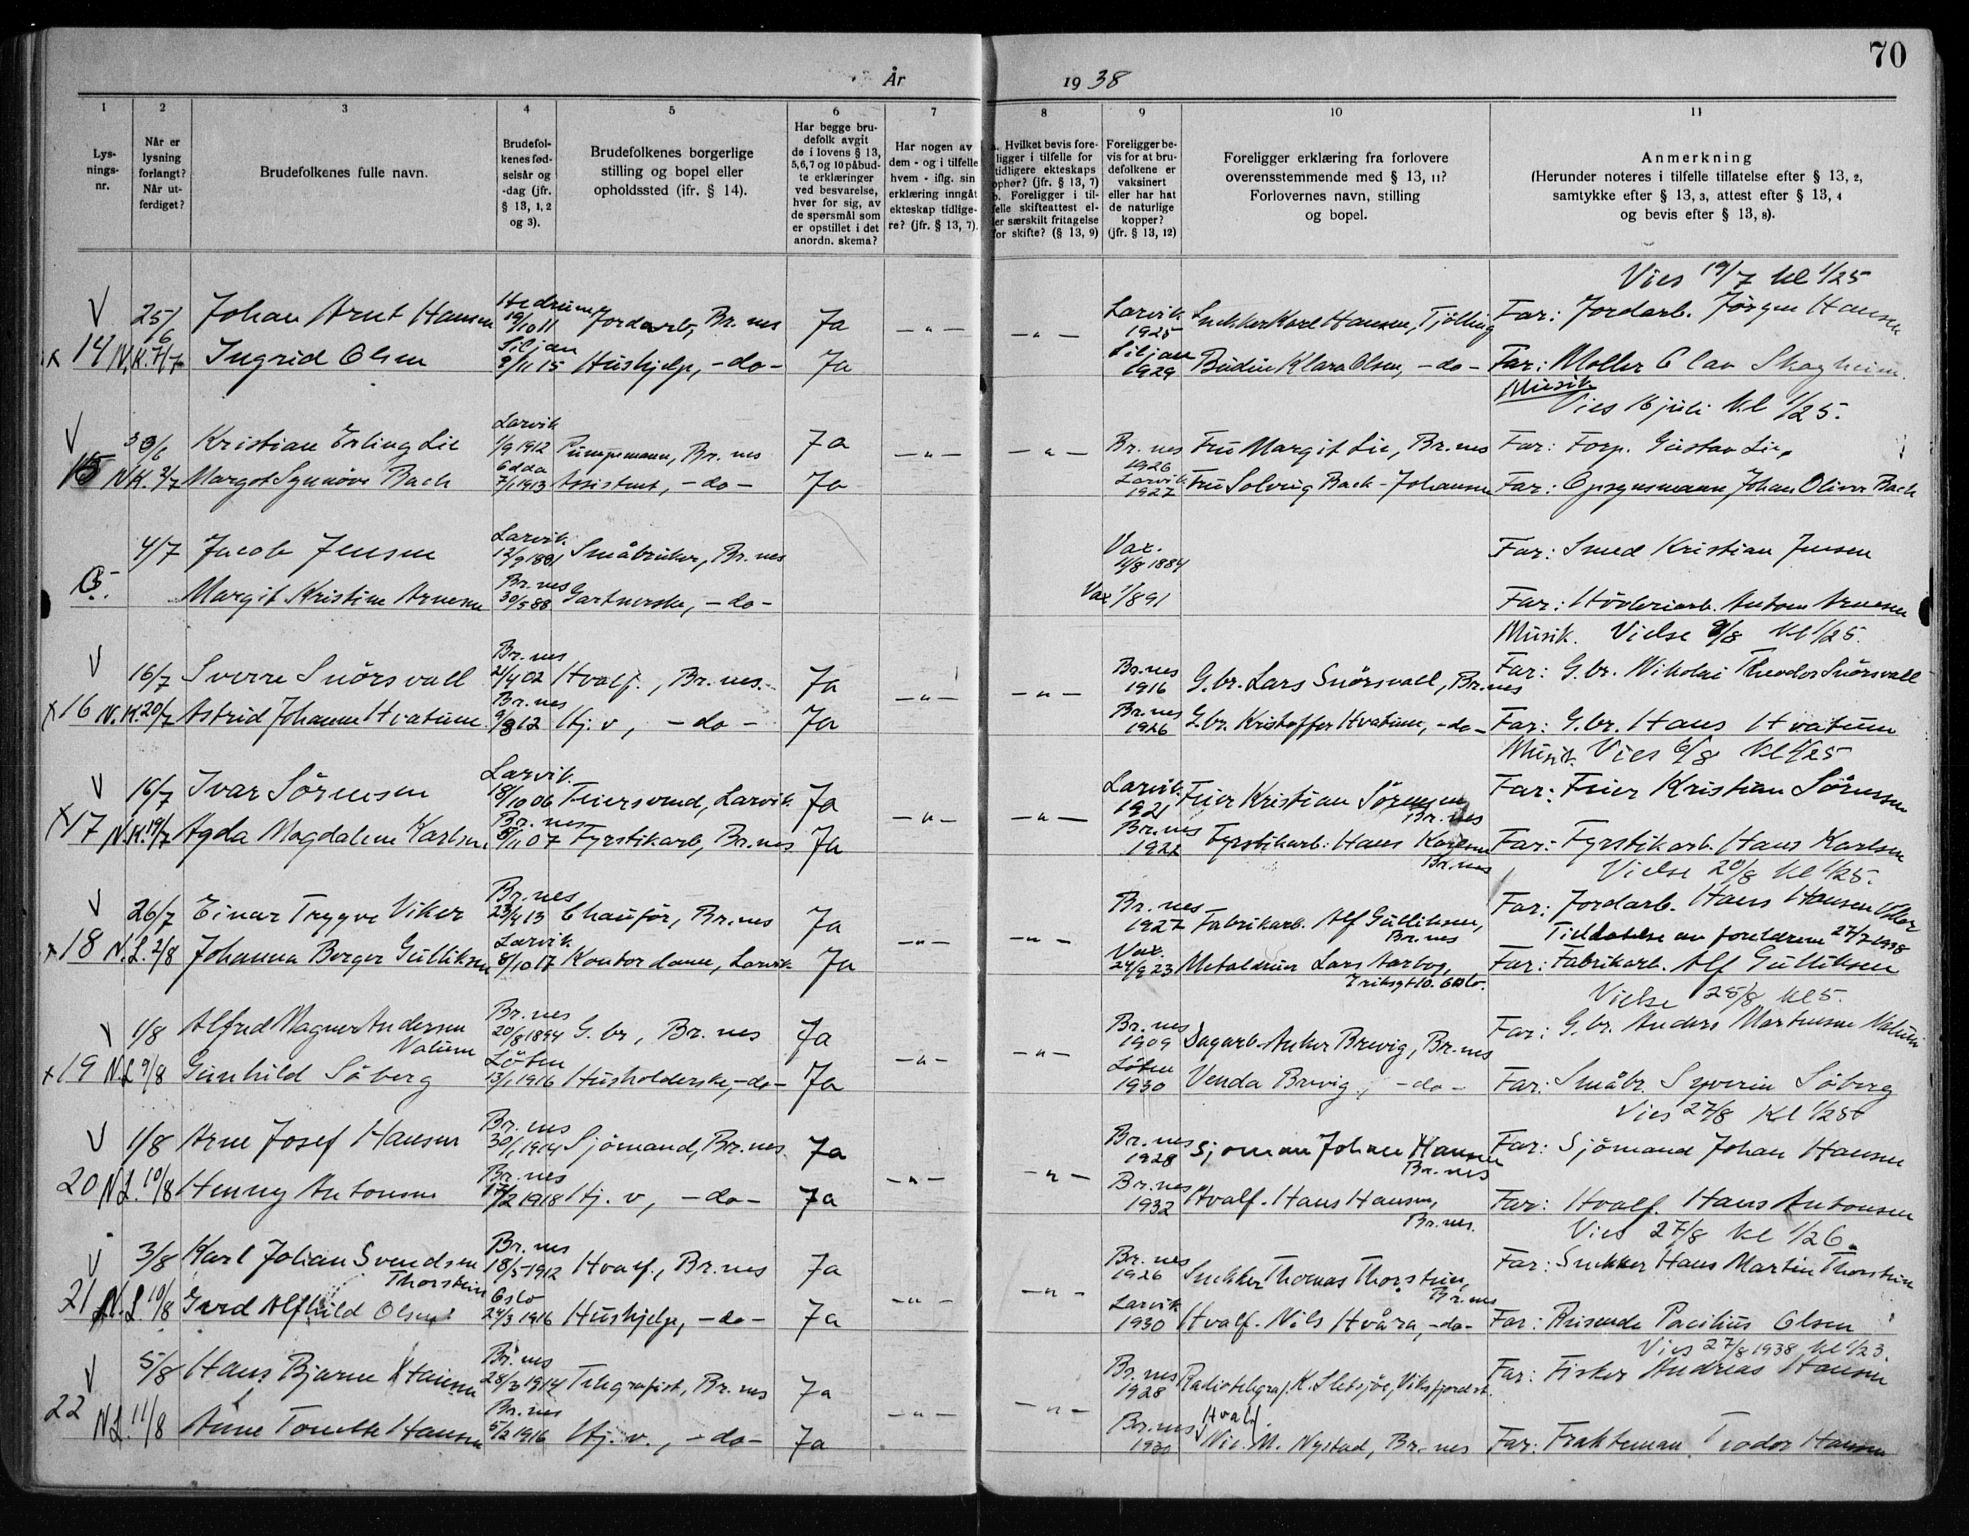 70
År 1938
1 2 3 4 5 6 7 8 9 10 11
Lysningsnr.
Når er lysning forlangt? Når utferdiget?
Brudefolkenes fulle navn.
Brudefolkenes fødselsår og -dag (jfr. § 13, 1, 2 og 3).
Brudefolkenes borgerlige stilling og bopel eller opholdssted (jfr. § 14).
Har begge brudefolk avgit de i lovens § 13, 5, 6, 7 og 10 påbudte erklæringer ved besvarelse, hver for sig, av de spørsmål som er opstillet i det anordn. skema?
Har nogen av dem - og i tilfelle hvem - iflg. sin erklæring inngåt ekteskap tidligere? (jfr. § 13, 7).
a. Hvilket bevis foreligger i tilfelle for tidligere ekteskaps ophør? (jfr. § 13, 7) b. Foreligger i tilfelle skifteattest eller særskilt fritagelse for skifte? (§ 13, 9)
Foreligger bevis for at brudefolkene er vaksinert eller har hat de naturlige kopper? (jfr. § 13, 12)
Foreligger erklæring fra forlovere overensstemmende med § 13, 11? Forlovernes navn, stilling og bopel.
Anmerkning (Herunder noteres i tilfelle tillatelse efter § 13, 2, samtykke efter § 13, 3, attest efter § 13, 4 og bevis efter § 13, 8).
Vies 19/7 kl 1/25
V 25/6 Johan Arnt Hansen Hedrum 19/10 11 Jordarb, Br.nes Ja Larvik 1925 Snekker Karl Hansen, Tjølling Far: Jordarb. Jørgen Hansen
x 14 N.K. 7/7 Ingrid Olsen Siljan 9/11 15 Hushjelp, -do- Ja -"- -"- Siljan 1929 Budeie Klara Olsen, -do- Far: Møller Olav Skogheim
Musik Vies 16 juli kl 1/25.
V 30/6 Kristian Erling Lie Larvik 1/9 1912 Pumpemann, Br.nes Ja -"- -"- Br.nes 1926 Fru Margit Lie, Br.nes Far: Forp. Gustav Lie
15 N.K. 2/7 Margot Synnøve Bach 7/1 1913 Assistent, -do- Ja Larvik 1927 Fru Solveig Bach-Johansen Far: Opsynsmann Johan Oliver Bach
4/7 Jacob Jensen Larvik 12/9 1881 Småbruker, Br.nes Vax. 11/8 1884 Far: Smed Kristian Jensen
Margit Kristine Arnesen Br.nes 30/5 88 Gartnerske, -do- Vax 1/8 91 Far: Høvleriarb. Anton Arnesen
Musik. Vielse 9/8 kl 1/25.
V 16/7 Sverre Snørsvall Br.nes 21/4 02 Hvalf., Br.nes. Ja -"- -"- Br.nes 1916 G.br. Lars Snørsvall, Br.nes Far: G.br. Nikolai Theodor Snørsvall
x 16 N.K. 20/7 Astrid Johanne Hvatum Br.nes 9/8 12 Hj.v, -do- Ja Br.nes 1926 G.br. Kristoffer Hvatum, -do- Far: G.br. Hans Hvatum
Musik. Vies 6/8 kl 1/25
V 16/7 Ivar Sørensen Larvik. 18/10 06 Feiersvend, Larvik. Ja Larvik 1921 Feier Kristian Sørensen Br.nes Far: Feier Kristian Sørensen
x 17 N.K. 19/7 Agda Magdalene Karlsen Br.nes 8/11 07 Fyrstikarb, Br.nes Ja -"- -"- Br.nes 1922 Fyrstikarb. Hans Karlsen Br.nes Far: Fyrstikarb. Hans Karlsen
Vielse 20/8 kl 1/25.
V 26/7 Einar Trygve Viker Br.nes 23/4 13 Chauför, Br.nes Ja Br.nes 1927 Fabrikarb. Alf Gulliksen, Br.nes Far: Jordarb. Hans Hansen Viker
Tilldatelse av foreldrene 27/7 1938
x 18 N.L. 2/8 Johanna Berger Gulliksen Larvik 8/10 17 Kontordame, Larvik Ja -"- -"- Vax. 24/9 23 Metaldreier Lars Aarbog, Eriksgt 10. Oslo. Far: Fabrikarb. Alf Gulliksen
Vielse 28/8 kl 5.
V 1/8 Alfred Wagner Andersen Natum Br.nes 20/8 1894 G.br, Br.nes Ja Br.nes 1909 Dagarb. Anker Brevig, Br.nes Far: G.br. Anders Martinsen Natum
x 19 N.L. 9/8 Gunhild Søberg Løten 13/1 1916 Husholderske, -do- Ja -"- -"- Løten 1930 Venda Brevig, -do- Far: Småbr. Syverin Søberg
Vies 27/8 kl 1/25
V 1/8 Arne Josef Hansen Br.nes 30/1 1914 Sjømand, Br.nes Ja Br.nes 1928 Sjøman Johan Hansen Br.nes Far: Sjømand Johan Hansen
20 N.L. 10/8 Henny Antonsen Br.nes 17/2 1918 Hj.v, -do- Ja -"- -"- Br.nes 1932 Hvalf. Hans Hansen, Br.nes. Far: Hvalf. Hans Antonsen
Vies 27/8 kl 1/26.
V 3/8 Karl Johan Svendsen Thorstein Br.nes 18/5 1912 Hvalf., Br.nes Ja Br.nes 1926 Snekker Thomas Thorstein, Br.nes Far: Snekker Hans Martin Thorstein
21 N.L. 10/8 Gerd Alfhild Olsen Oslo 24/3 1916 Hushjelp, -do- Ja -"- -"- Larvik 1930 Hvalf. Nils Hvåra, -do- Far: Reisende Pacilius Olsen
Vies 27/8 1938 kl 1/23.
V 5/8 Hans Bjarne Hansen Br.nes 28/3 1914 Telegrafist, Br.nes Ja Br.nes 1928 Radiotelegraf. K. Sletsjøe, Viksfjord st. Far: Fisker Andreas Hansen
22 N.L. 11/8 Anne Tonette Hansen Br.nes 5/2 1916 Hj.v., -do- Ja -"- -"- Br.nes 1930 Hvalf. Nic. M. Nystad, Br.nes Far: Fraktemann Teodor Hansen